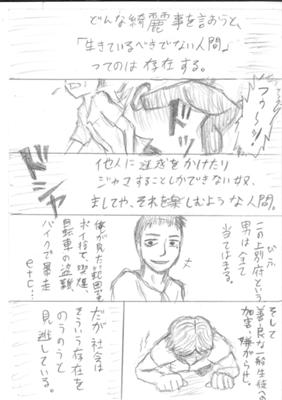 どんな綺麗事を言おうと、
「生きているべきでない人間」
ってのは存在する。
ドガ
ドッ
他人に迷惑をかけたり
ジャマすることしかできない奴、
ましてや、それを楽しむような人間。
この上別府という
びふ
男は全て
当てはまる。
俺が見た範囲で
ポイ捨て、喫煙、
自転車の盗難、
バイクで暴走
etc...
そして
善良な一般生徒への
加害・嫌がらせ。
だが社会は
そういう存在を
のうのうと
見逃している。